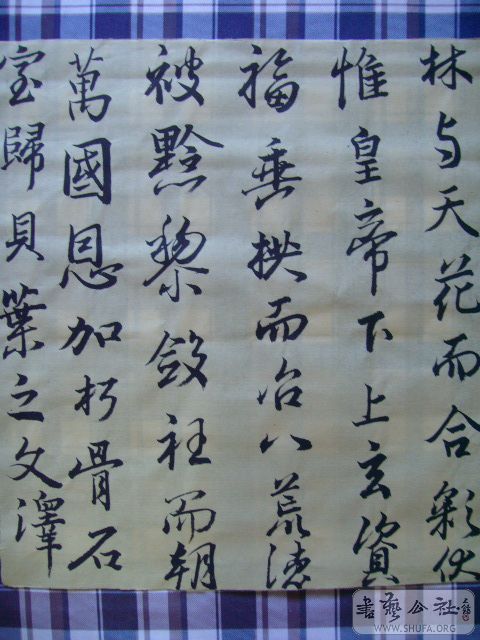 林与天花而合彩伏
惟皇帝下上玄資
福垂拱而治八荒德
被黔黎斂衽而朝
萬國恩加朽骨石
室歸貝葉之文澤
書藝公社
WWW.SHUFA.ORG